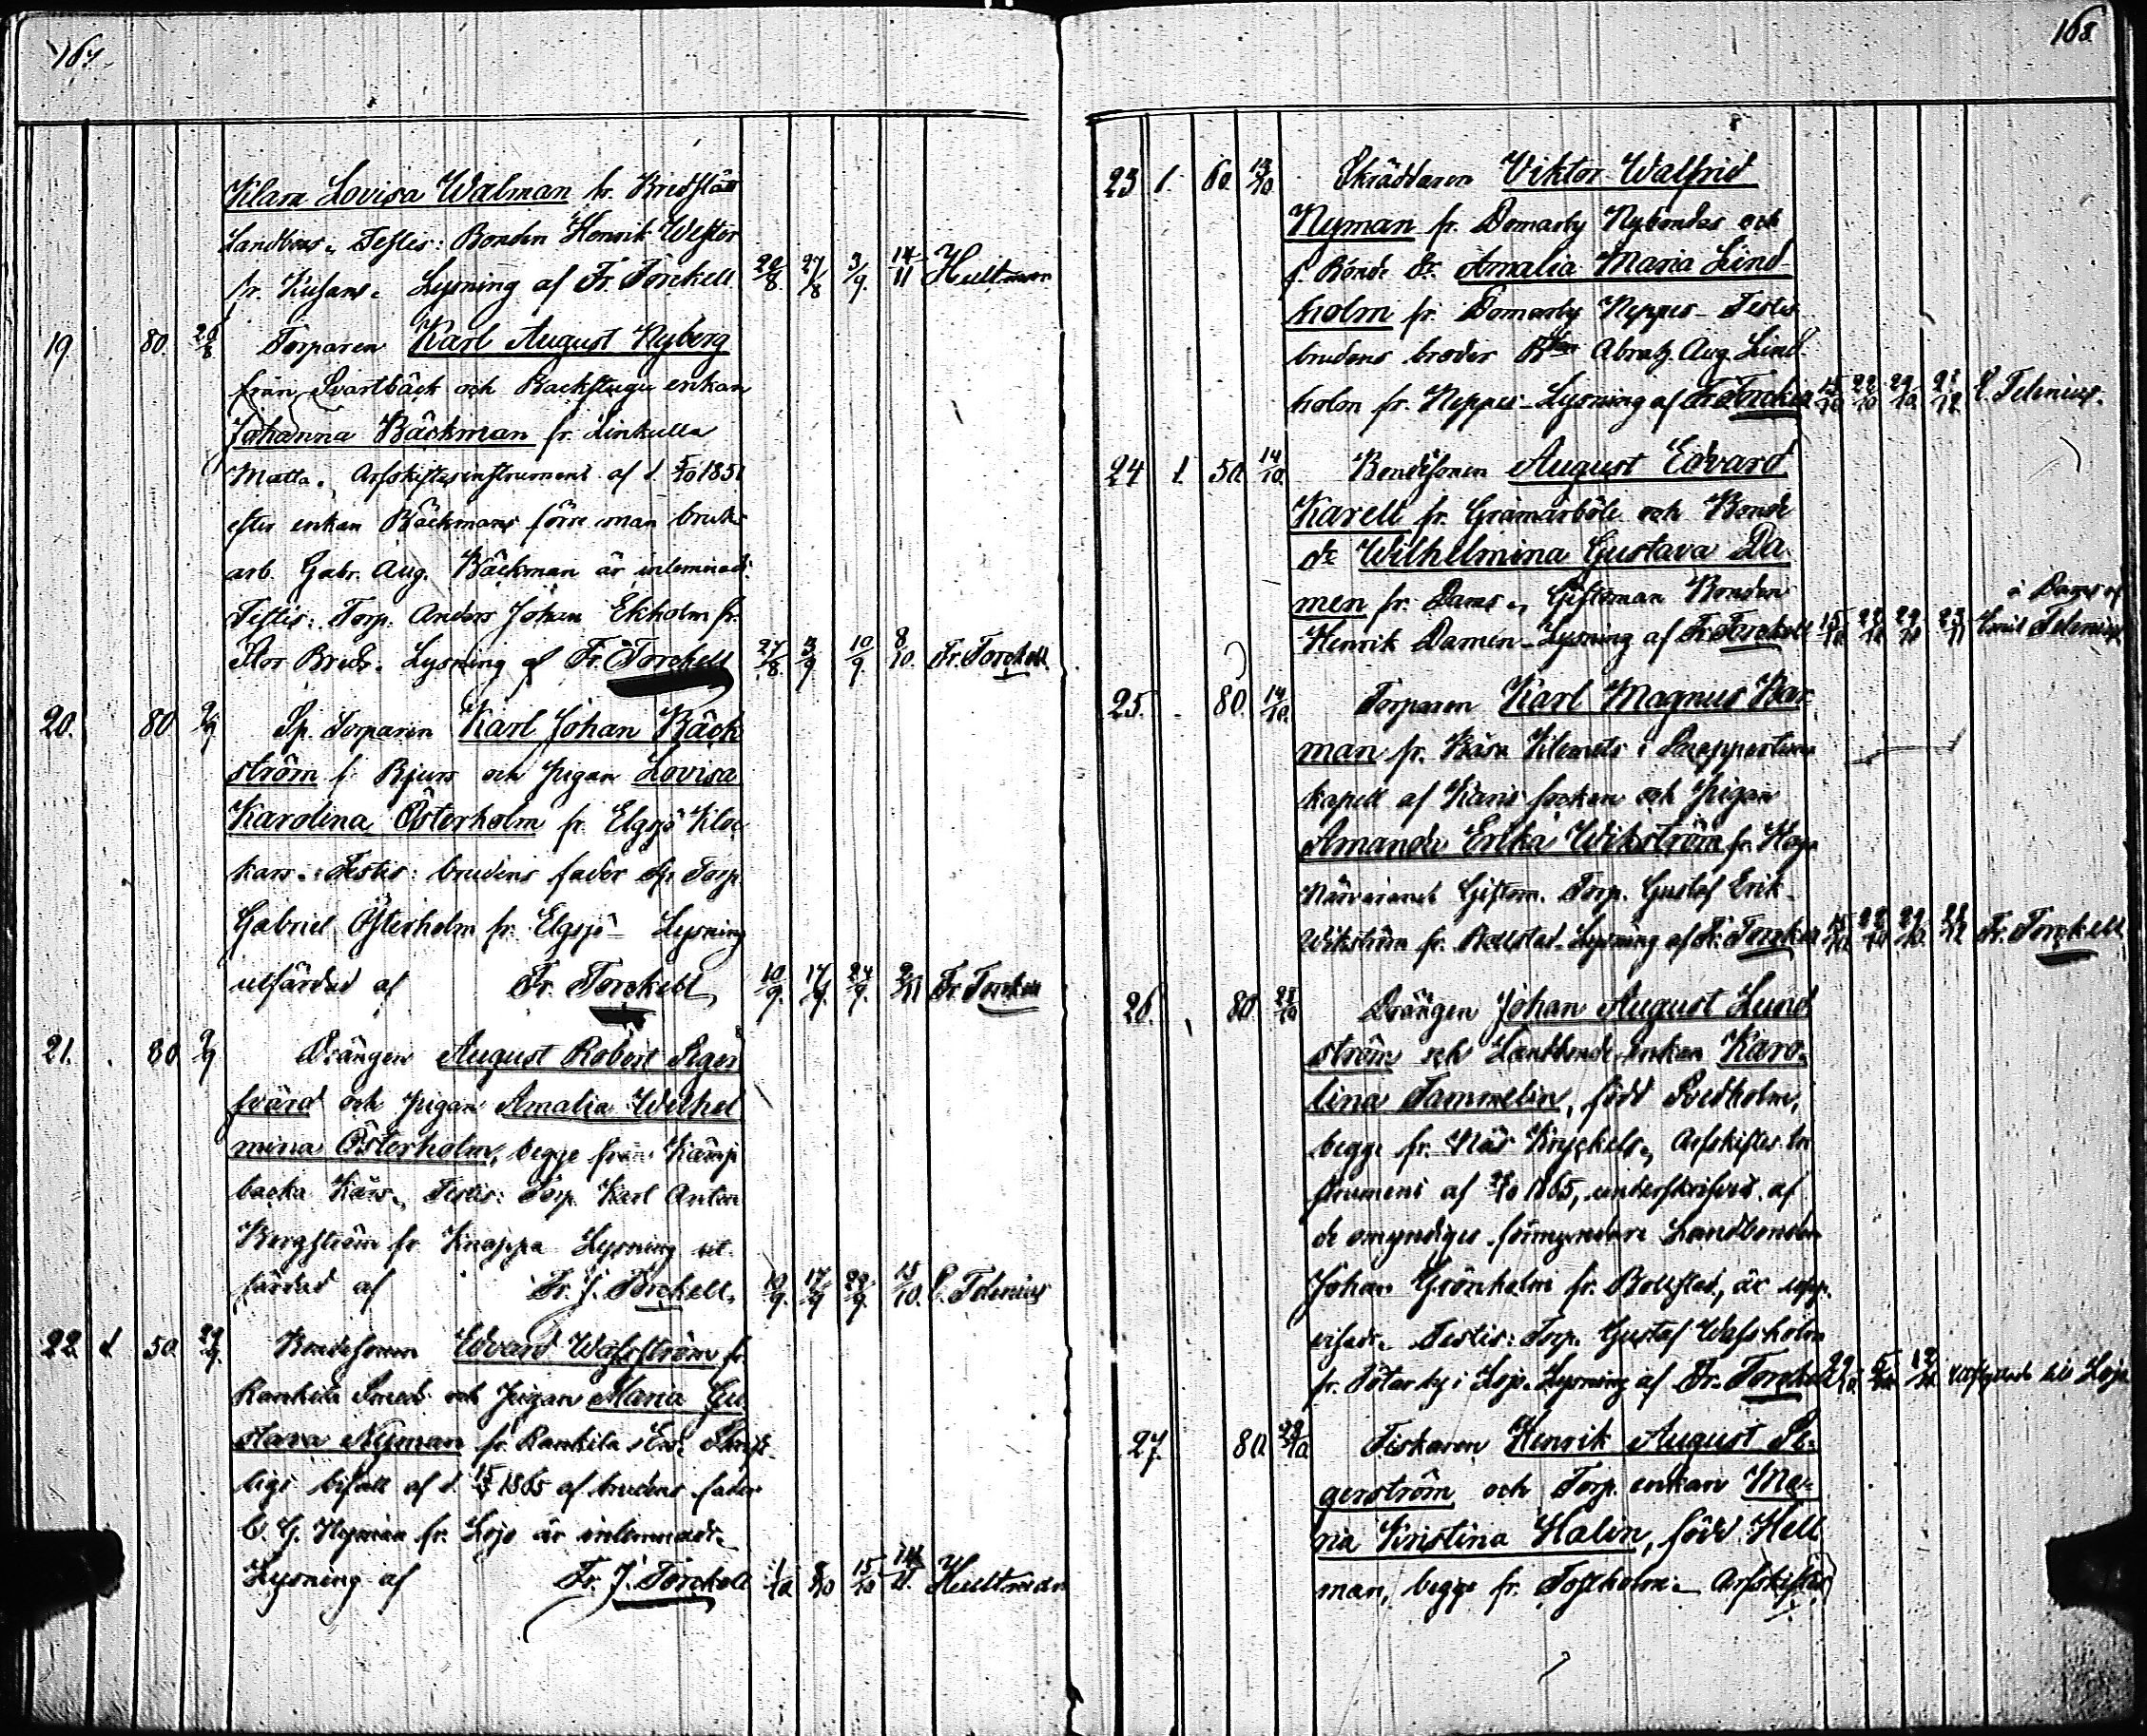 167.
Klara Lovisa Walman fr. Bredslätt
Landbos. Testis: Bonden Henrik Wester
fr. Kusans. Lysning af Fr. Torckell 20/8 27/8 3/9 14/11 Hultman
19 80. 26/8 Torparen Karl August Nyberg
från Svartbäck och Backstugu enkan
Johanna Bäckman fr. Linkulla
Matts. Arfskiftesinstrument af d. 5/10 1851
efter enkan Bäckmans förre man bruks
arb. Gabr. Aug. Bäckman är inlemnadt.
Testis: Torp. Anders Johan Ekholm fr.
Stor Breds. Lysning af Fr. Torckell 27/8 3/9 10/9 8/10. Fr. Torckell.
20. 80 9/9 Sp. Torparen Karl Johan Bäck
ström f. Bjurs och Pigan Lovisa
Karolina Österholm fr. Elgsjö Kloc
kars. Testis: brudens fader Sp. Torp.
Gabriel Österholm fr. Elgsjö – Lysning
utfärdad af Fr. Torckell, 10/9. 17/9. 24/9. 2/11 Fr. Torckell
21. 80 9/9 Drängen August Robert Seger
svärd och Pigan Amalia Wilhel
mina Österholm, begge från Kämp
backa Kärs. Testis: Torp. Karl Anton
Bergström fr. Knappa Lysning ut
färdad af Fr. J. Torckell. 10/9. 17/9 24/9. 15/10. E. Telenius
22. d 50. 29/9. Bondesonen Edvard Wassström fr.
Rankila Smeds och Pigan Maria Gu
stava Nyman fr. Rankila Ers. Skrift
ligt bifall af d. 1865 af brudens fader
C. G. Nyman fr. Lojo är inlemnadt.
Lysning af Fr. J. Torckell 1/10 8/10 15/10 14/11. Hultman
168.
23 1. 60. 13/10. Skräddaren Viktor Walfrid
Nyman fr. Domarby Nybondas och
f. Bonde dr. Amalia Maria Lind
holm fr. Domarby Neppes – Testis
brudens broder Abrah. Aug. Lind
holm fr. Neppes – Lysning af Fr. Torckell 15/10 22/10 29/10. 21/12 E. Telenius.
24 1. 50. 14/10. Bondesonen August Edvard
Karell fr. Gråmarböle och Bonde
dr Wilhelmina Gustava Da
men fr. Dams. Giftoman Bonden
Henrik Damén – Lysning af Fr. Torckell 15/10 22/10 29/10 23/11 å Dams af
Emil Telenius
25. 80. 14/10. Torparen Karl Magnus Bar
man fr. Bäsa Klemets i Snappertuna
kapell af Karis socken och Pigan
Amanda Erika Wikström fr. Haga
Närvarand Giftom. Torp. Gustaf Erik
Wikström fr. Bollstad. Lysning af Fr. Torckell 15/10 22/10 29/10. 28/12 Fr. Torckell
26. 80. 28/10 Drängen Johan August Lund
ström och Landbonde enkan Karo
lina Tammelin, född Svedholm,
begge fr. Näs Knyckels. Arfskiftes In
strument af 1865, underskrifvet af
de omyndiges förmyndare Landbonden
Johan Grönholm fr. Bollstad, är upp
visadt. Testis: Torp. Gustaf Wassholm
fr. Tötar by i Lojo. Lysning af Fr. Torckell 29/10 5/11 12/11 utflyttade till Lojo
27. 80. 28/10 Fiskaren Henrik August Se
gerström och Torp. enkan Ma
ria Kristina Halin, född Hell
man, begge fr. Torsholm. Arfskiftes